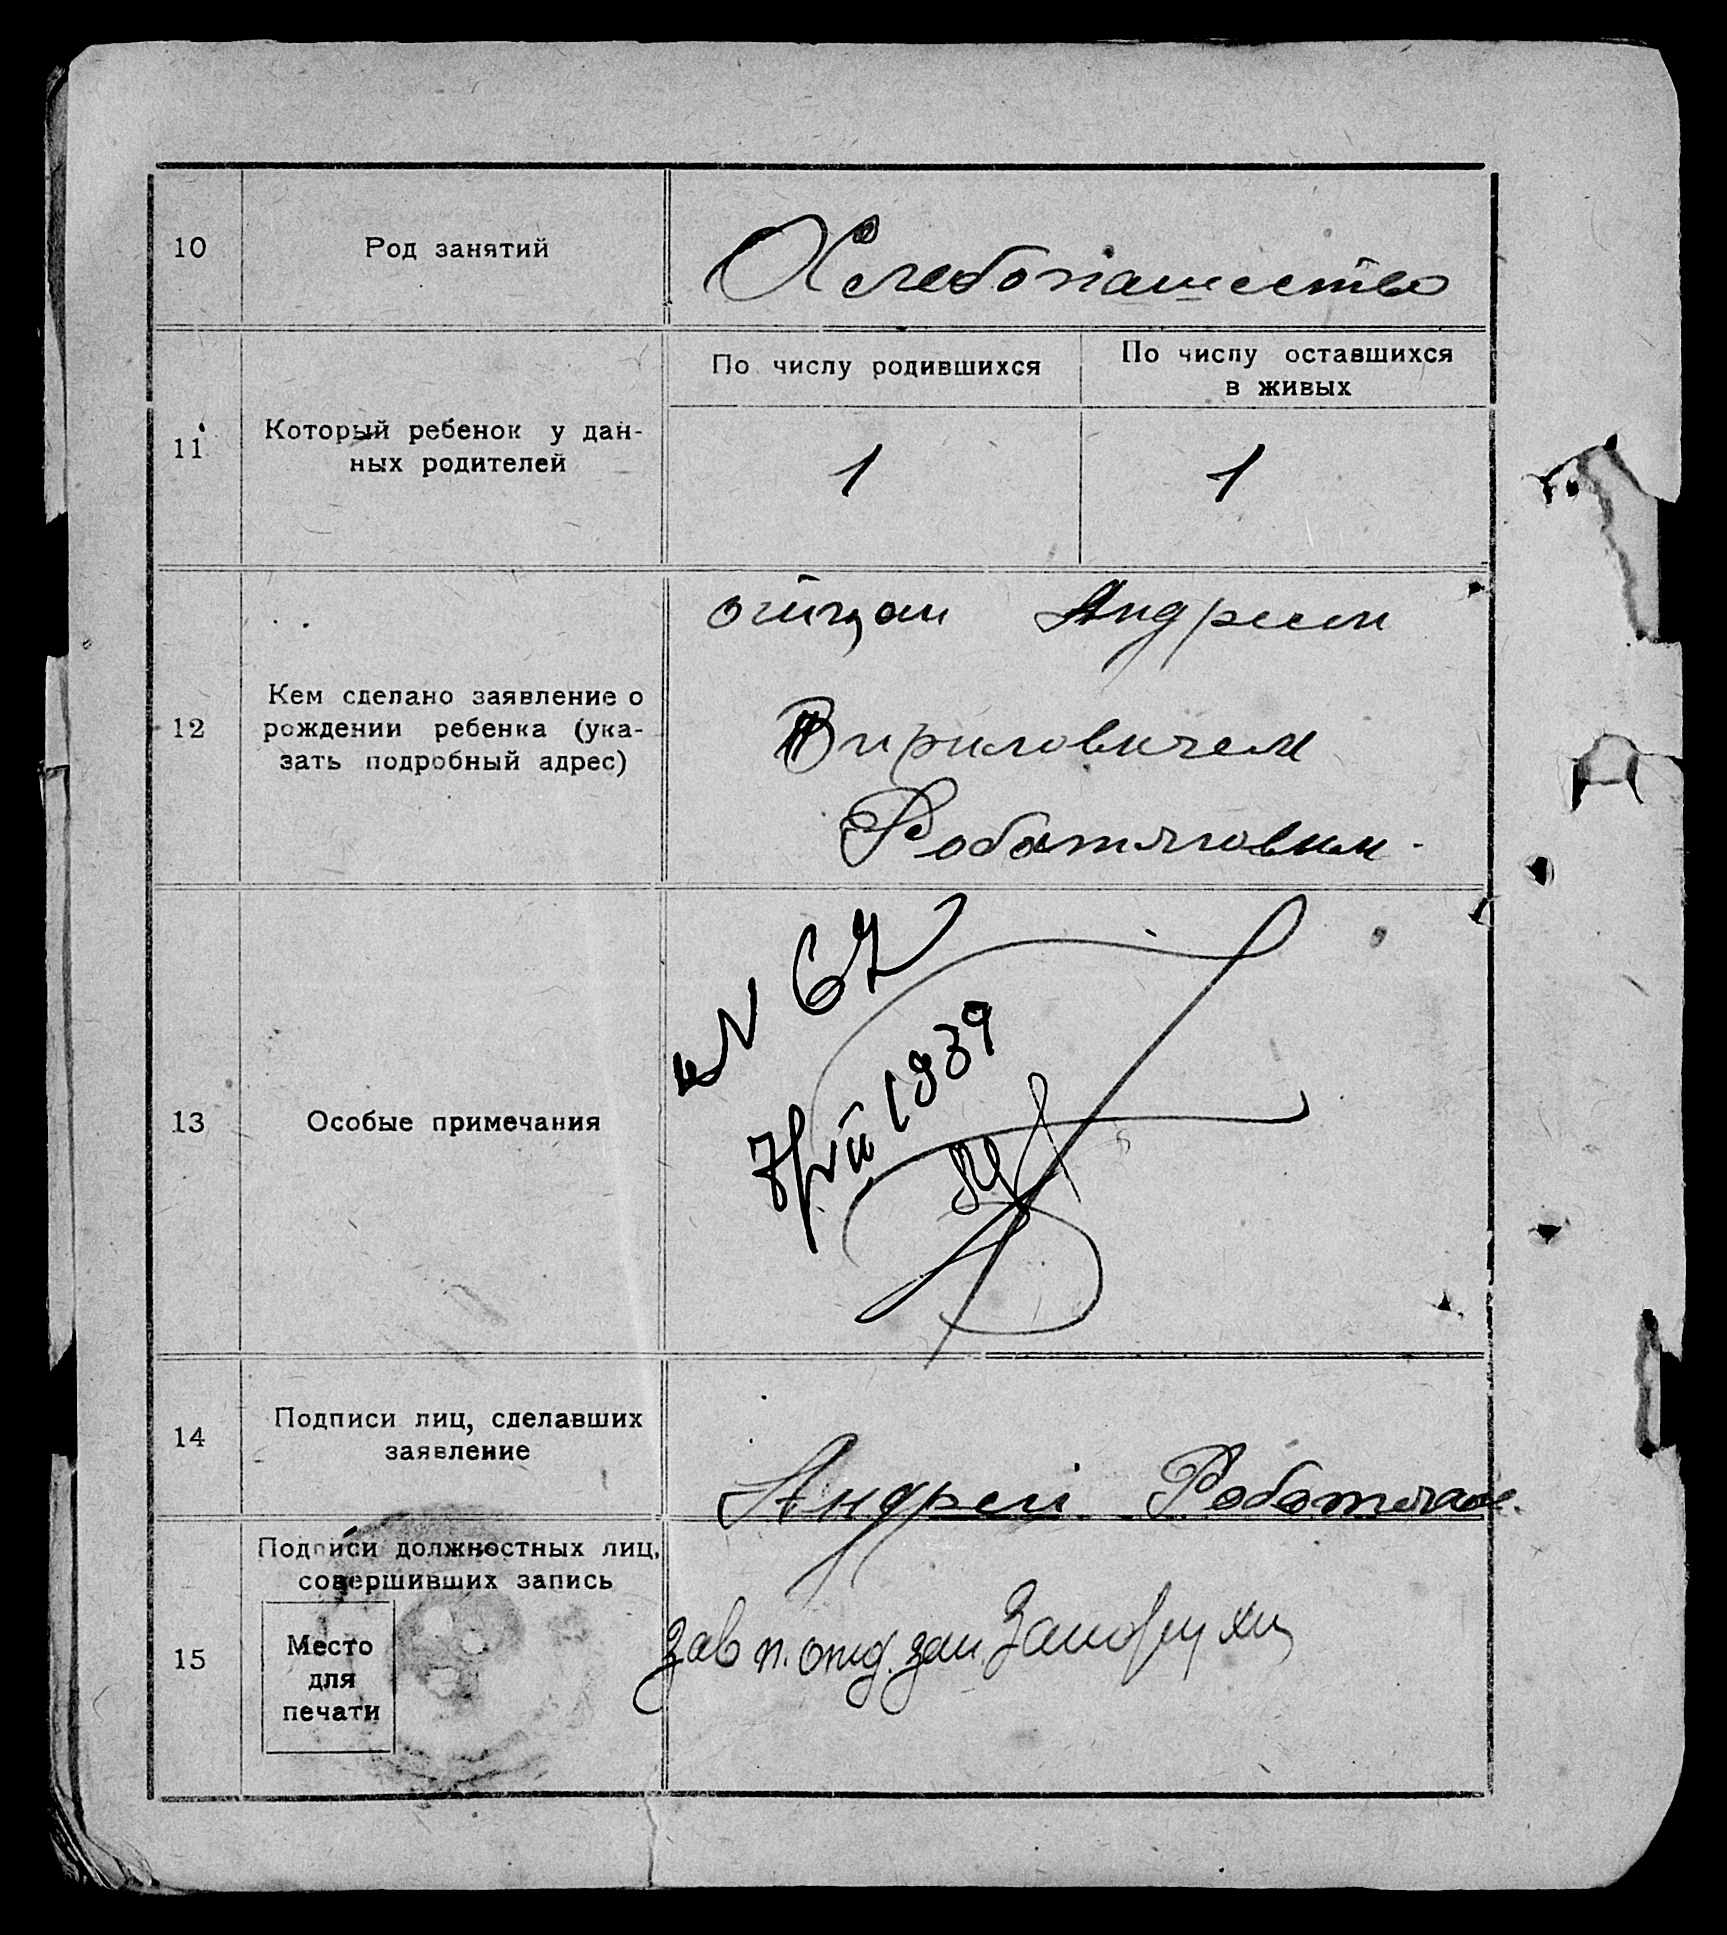 10
Род занятий
Хлебопашество
11
Который ребенок у дан-
ных родителей
По числу родившихся
По числу оставшихся
в живых
1
1
12
Кем сделано заявление о
рождении ребенка (ука-
зать подробный адрес)
отцом Андреем
Кириловичем
Роботяговим
13
Особые примечания
№ 67
7/VII 1939
14
Подписи лиц, сделавших
заявление
Андрей
15
Подписи должностных лиц,
совершивших запись
Место
для
печати
зав п. отд.